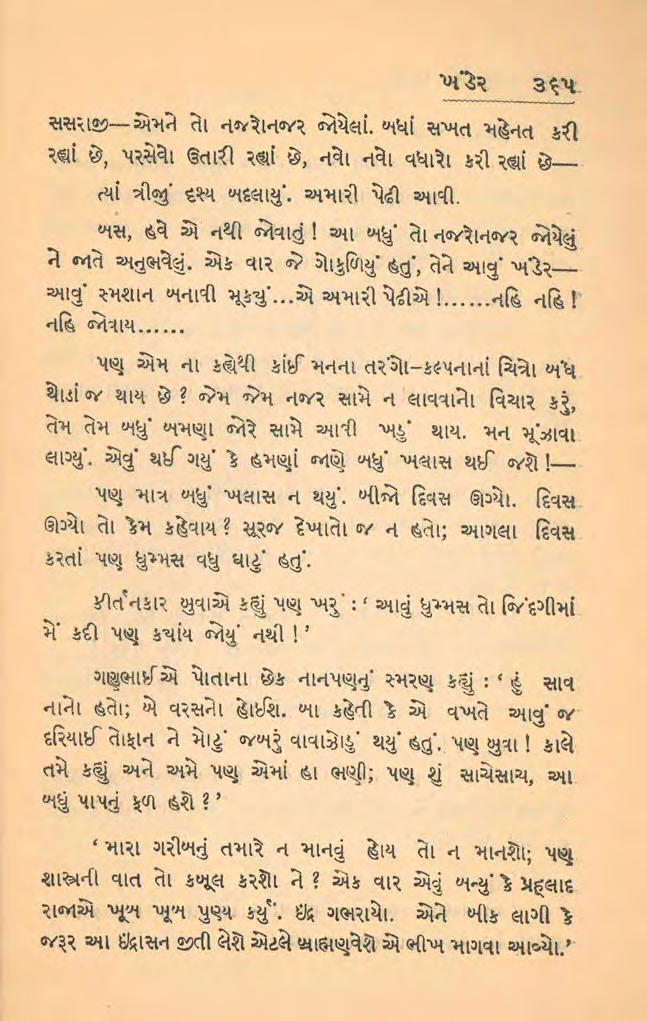 ખંડેર ૩૬૫
સસરાજી—એમને તો નજરોનજર જોયેલાં. બધાં સખત મહેનત કરી
રહ્યાં છે, પરસેવો ઉતારી રહ્યાં છે, નવો નવો વધારો કરી રહ્યાં છે—
ત્યાં ત્રીજું દૃશ્ય બદલાયું. અમારી પેઢી આવી.
બસ, હવે એ નથી જોવાતું ! આ બધું તો નજરોનજર જોયેલું
ને જાતે અનુભવેલું. એક વાર જે ગોકુળિયું હતું, તેને આવું ખંડેર—
આવું સ્મશાન બનાવી મૂક્યું...એ અમારી પેઢીએ !......નહિ નહિ !
નહિ જોવાય......
પણ એમ ના કહ્યેથી કાંઈ મનના તરંગો–કલ્પનાનાં ચિત્રો બંધ
થોડાં જ થાય છે ? જેમ જેમ નજર સામે ન લાવવાનો વિચાર કરું,
તેમ તેમ બધું બમણા જોરે સામે આવી ખડું થાય. મન મૂંઝાવા
લાગ્યું. એવું થઈ ગયું કે હમણાં જાણે બધું ખલાસ થઈ જશે !—
પણ માત્ર બધું ખલાસ ન થયું. બીજો દિવસ ઊગ્યો. દિવસ
ઊગ્યો તો કેમ કહેવાય ? સૂરજ દેખાતો જ ન હતો; આગલા દિવસ
કરતાં પણ ધુમ્મસ વધુ ઘાટું હતું.
કીર્તનકાર બુવાએ કહ્યું પણ ખરું : ‘ આવું ધુમ્મસ તો જિંદગીમાં
મેં કદી પણ ક્યાંય જોયું નથી ! ’
ગણુભાઈએ પોતાના છેક નાનપણનું સ્મરણ કહ્યું : ‘ હું સાવ
નાનો હતો; બે વરસનો હોઈશ. બા કહેતી કે એ વખતે આવું જ
દરિયાઈ તોફાન ને મોટું જબરું વાવાઝોડું થયું હતું. પણ બુવા ! કાલે
તમે કહ્યું અને અમે પણ એમાં હા ભણી; પણ શું સાચેસાચ, આ
બધું પાપનું ફળ હશે ? ’
‘ મારા ગરીબનું તમારે ન માનવું હોય તો ન માનશો; પણ
શાસ્ત્રની વાત તો કબૂલ કરશો ને ? એક વાર એવું બન્યું કે પ્રહ્‌લાદ
રાજાએ ખૂબ ખૂબ પુણ્ય કર્યું. ઇંદ્ર ગભરાયો. એને બીક લાગી કે
જરૂર આ ઇંદ્રાસન જીતી લેશે એટલે બ્રાહ્મણવેશે એ ભીખ માગવા આવ્યો.’